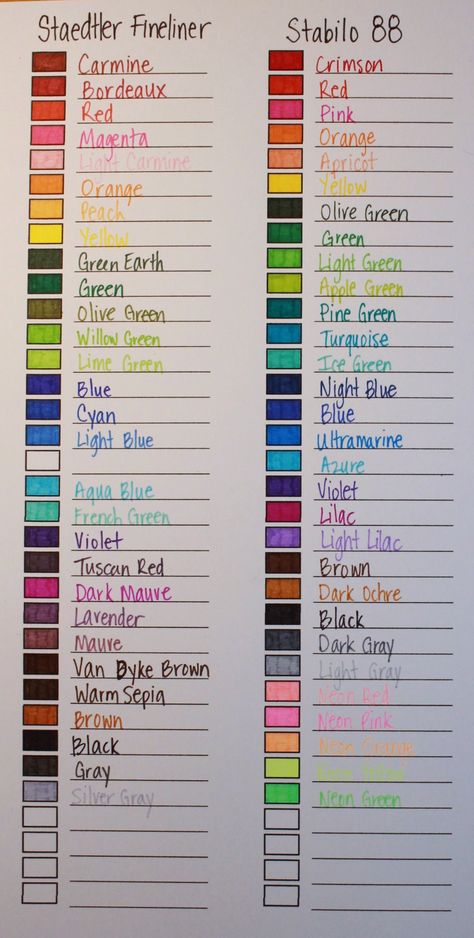 Staedtler Fineliner
Carmine
Bordeaux
Red
Magenta
Light Carmine
Orange
Peach
Yellow
Green Earth
Green
Olive Green
Willow Green
Lime Green
Blue
Cyan
Light Blue
Aqua Blue
French Green
Violet
Tuscan Red
Dark Mauve
Lavender
Mauve
Van Dyke Brown
Warm Sepia
Brown
Black
Gray
Silver Gray
Stabilo 88
Crimson
Red
Pink
Orange
Apricot
Yellow
Olive Green
Green
Light Green
Apple Green
Pine Green
Turquoise
Ice Green
Night Blue
Blue
Ultramarine
Azure
Violet
Lilac
Light Lilac
Brown
Dark Ochre
Black
Dark Gray
Light Gray
Neon Red
Neon Pink
Neon Orange
Neon Yellow
Neon Green